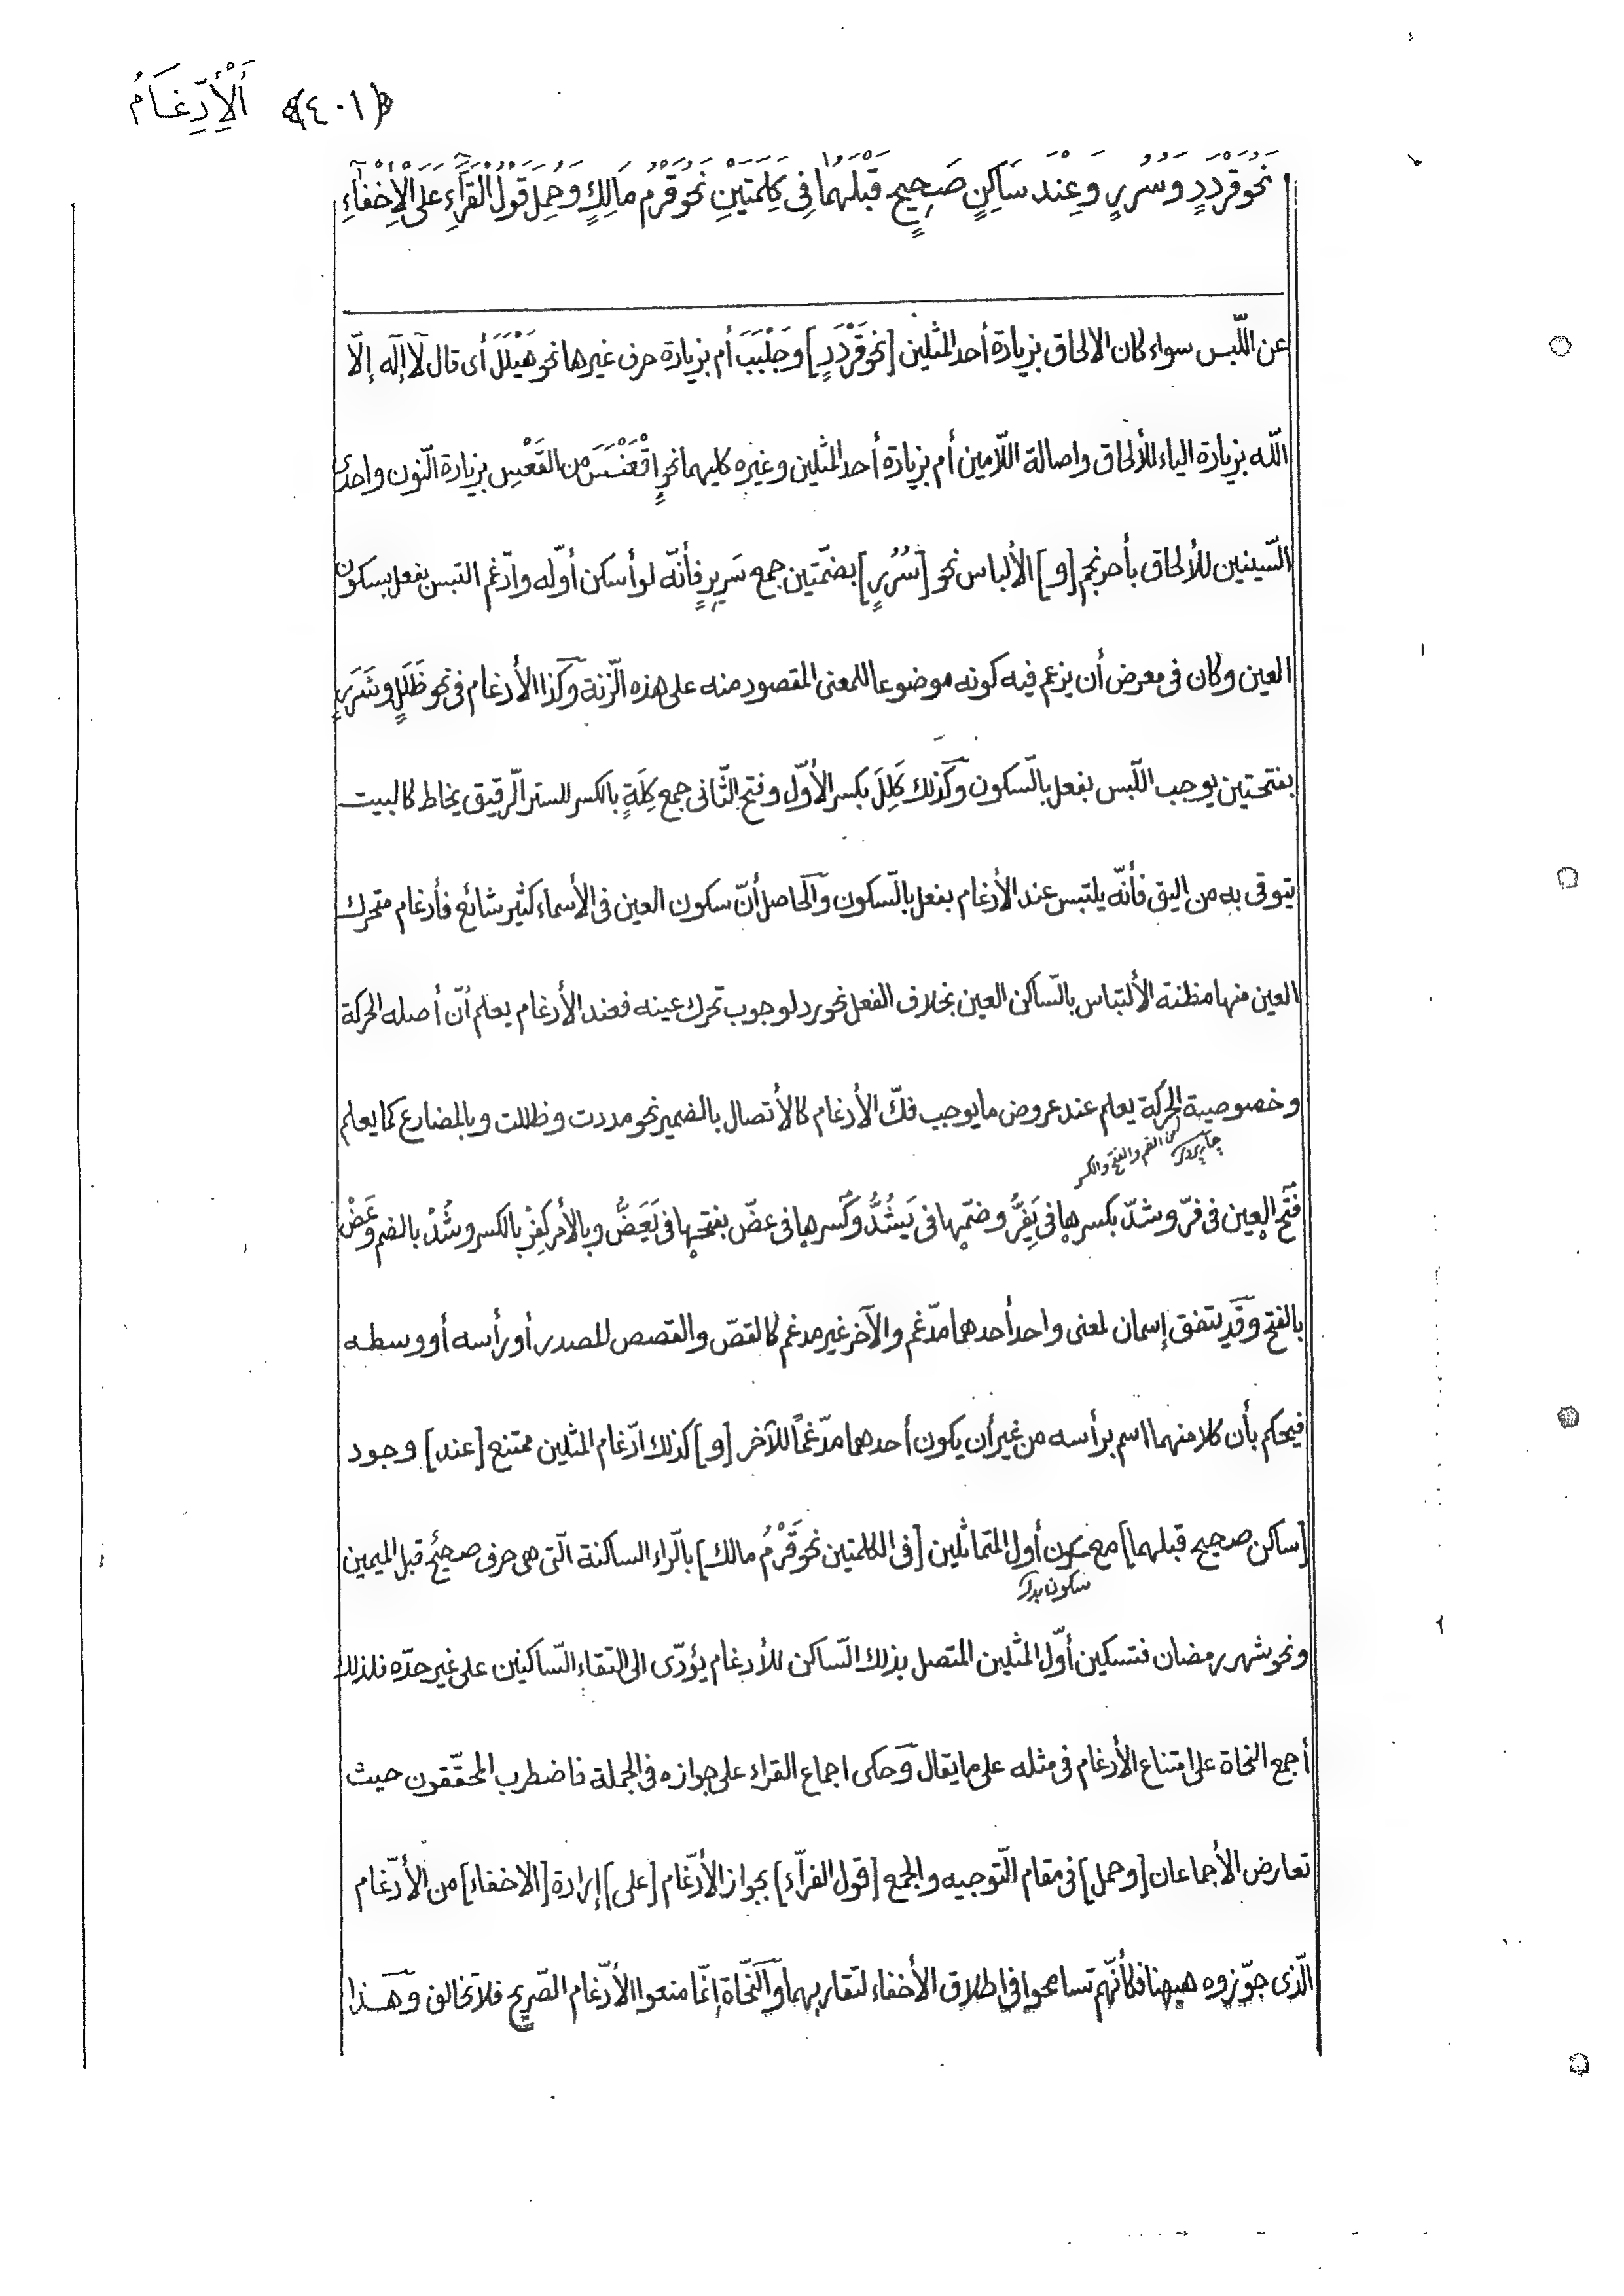 ﴿٤٠١﴾ أَلْأِدِّغَامُ
نَحْوُ قَرْدَدٍ وَسُرُرٍ وَعِنْدَ سَاكِنٍ صَحِيحٍ قَبْلَهُمَا فِى كَلِمَتَيْنِ نَحْوُ قَرْمُ مَالِكٍ وَحُمِلَ قَوْلُ الْقُرَّآءِ عَلَى الْأِخْفَآءِ
عن اللّبس سواء كان الالحاق بزيادة أحد المثلين [نحو قَرْدَدٍ] وجَلْبَبَ أم بزيادة حرف غيرها نحو هَيْلَلَ أى قال لآ إلٓه إلّا
اللّه بزيادة الياء للألحاق واصالة اللّامين أم بزيادة أحد المثلين وغيره كليهما نحو إقْعَنْسَسَ من القَعْسِ بزيادة النّون واحدى
السّينين للألحاق بأحرنجم [و] الألباس نحو [سُرُرٍ] بضمّتين جمع سَرِيرٍ فأنّه لو أسكن أوّله وادّغم التبس بفعل بسكون
العين وكان فى معرض أن يزعم فيه كونه موضوعا للمعنى المقصود منه على هذه الزّنة وكذا الأدغام فى نحو ظَلَلٍ وشَرَرٍ
بفتحتين يوجب اللّبس بفعل بالسّكون وكذلك كِلَلَ بكسر الأوّل وفتح الثّانى جمع كِلَةٍ بالكسر للستر الرّقيق يخاط كالبيت
يتوقى به من البق فأنّه يلتبس عند الأدغام بفعل بالسّكون والحاصل أنّ سكون العين فى الأسماء كثير شائع فأدغام متحرك
العين منها مظنة الألتباس بالسّاكن العين بخلاف الفعل نحو رد لوجوب تحرك عينه فعند الأدغام يعلم أنّ أصله الحركة
وخصوصية الحركة يعلم عند عروض ما يوجب فكّ الأدغام كالأتصال بالضمير نحو مددت وظللت وبالمضارع كما يعلم
من الضم والفتح والكسر
فتح العين فى فرّ وشدّ بكسرها فى يَفِرُّ وضمّها فى يَشُدُّ وكسرها فى عضّ بفتحها فى يَعَضُّ وبالأمر كفِرْ بالكسر وشُدْ بالضم وعَضْ
بالفتح وقد يتفق إسمان لمعنى واحد أحدهما مدّغم والآخر غير مدغم كالقصّ والقصص للصدر أو رأسه أو وسطه
فيحكم بأن كلا منهما اسم برأسه من غير أن يكون أحدهما مدّغماً للآخر [و] كذلك ادّغام المثلين ممتنع [عند] وجود
[ساكن صحيح قبلهما] مع سكون أول المتماثلين [فى الكلمتين نحو قَرْمُ مالك] بالرّاء الساكنة الّتى هى حرف صحيح قبل الميمين
ونحو شهر رمضان فتسكين أوّل المثلين المتصل بذلك السّاكن للأدغام يؤدّى الى التقاء السّاكنين على غير حدّه فلذلك
أجمع النحاة على امتناع الأدغام فى مثله على ما يقال وحكى اجماع القراء على جوازه فى الجملة فاضطرب المحقّقون حيث
تعارض الأجماعان [وحمل] فى مقام التّوجيه والجمع [قول القرآء] بجواز الأدّغام [على] إرادة [الاخفاء] من الأدّغام
الّذى جوّزوه هيهنا فكأنّهم تسامحوا فى اطلاق الأخفاء لتقاربهما والنّحاة إنّما منعوا الأدّغام الصّريح فلا تخالف وهـذا